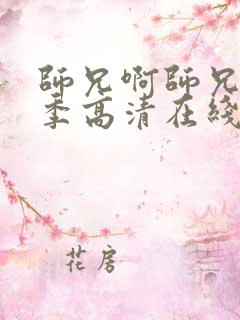 師兄啊師兄
季高清在綫
花房